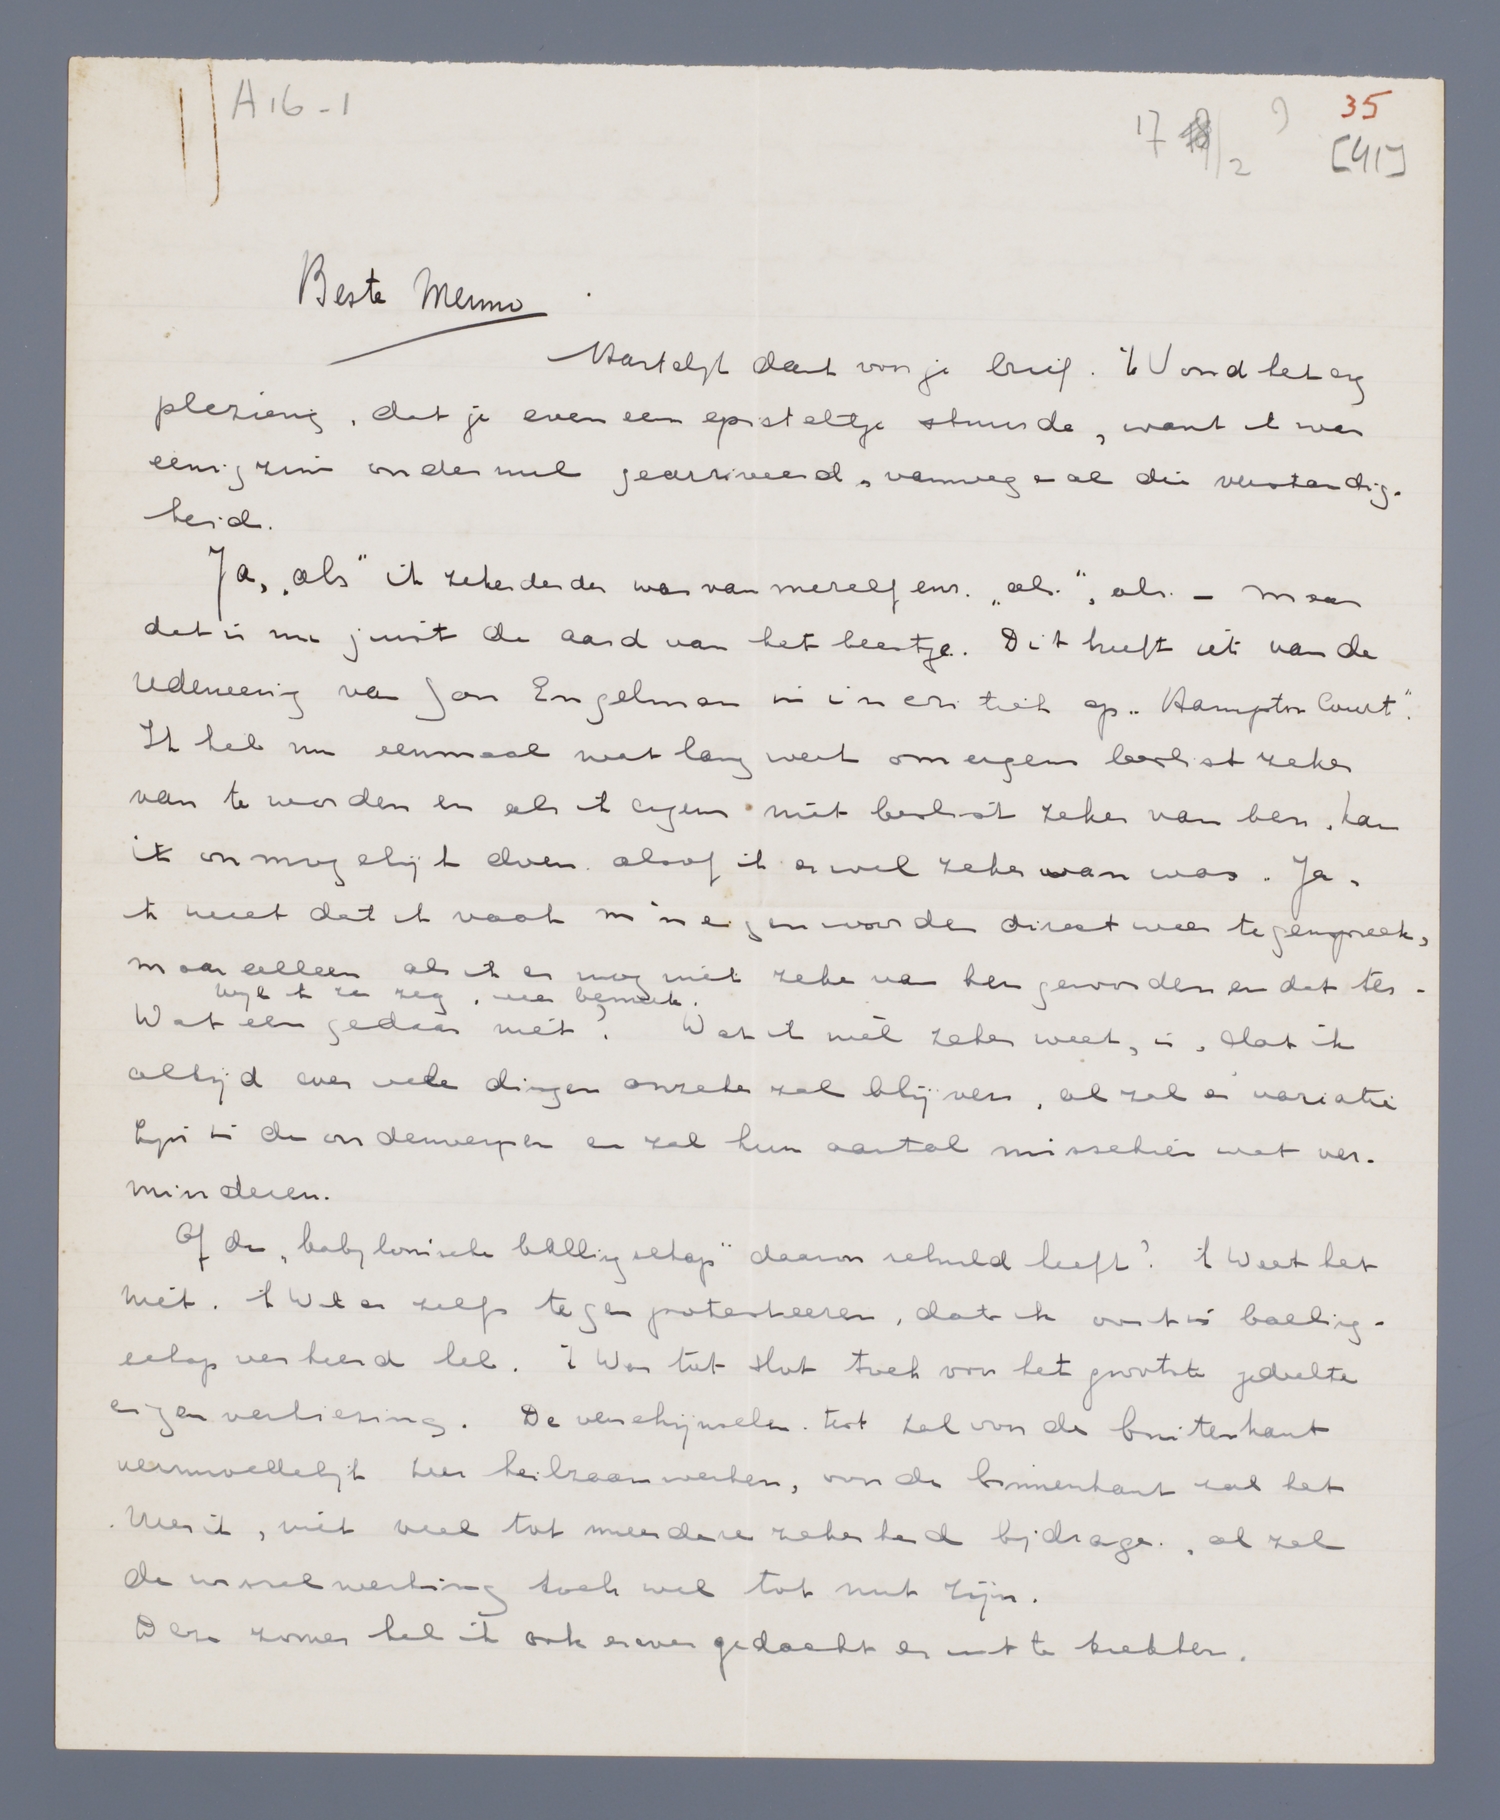 A 16 - 1
17 /2 9 35
[41]
Beste Menno
Hartelijk dank voor je brief. 'k Vond het erg
plezierig, dat je even een episteltje stuurde, want ik was
eenigszins onder nul gearriveerd, vanwege al die verstandig-
heid.
Ja, „als" ik zekerder was van mezelf enz. „als", als. — Maar
dat is nu juist de aard van het beestje. Dit heeft iets van de
redeneering van Jan Engelman in z'n critiek op „Hampton Court".
Ik heb nu eenmaal wat lang werk om ergens beslist zeker
van te worden en als ik ergens niet beslist zeker van ben, kan
ik onmogelijk doen alsof ik er wel zeker van was. Ja,
ik weet dat ik vaak m'n eigen woorden direct weer tegenspreek,
maar alleen als ik er nog niet zeker van ben geworden en dat ter-
wijl ik ze zeg, weer bemerk.
Wat een gedaas niet? Wat ik wél zeker weet, is, dat ik
altijd over vele dingen onzeker zal blijven, al zal er variatie
zijn in de onderwerpen en zal hun aantal misschien wat ver-
minderen.
Of de „babylonische ballingschap" daaraan schuld heeft? 'k Weet het
niet. 'k Wil er zelfs tegen protesteeren, dat ik ooit in balling-
schap verkeerd heb. 't Was tot slot toch voor het grootste gedeelte
eigen verkiezing. De verschijnselen. Het zal voor de buitenkant
vermoedelijk zeer heilzaam werken, voor de binnenkant zal het
, niet veel tot meerdere zekerheid bijdragen, al zal
de wisselwerking toch wel tot nut zijn.
Deze zomer heb ik ook erover gedacht er uit te trekken.